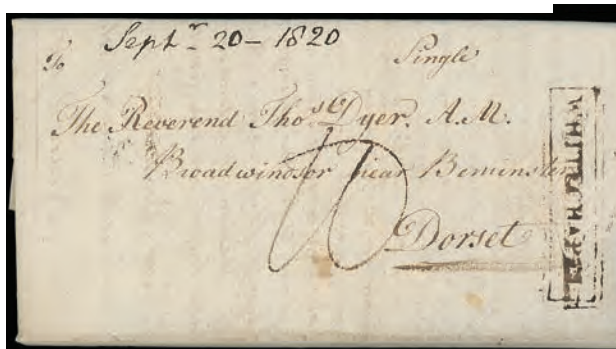 Septr 20 - 1820
To
Single
The Reverend Thos Dyer. A.M.
Broadwindsor near Beminster
Dorset
10
WHITECHAPEL